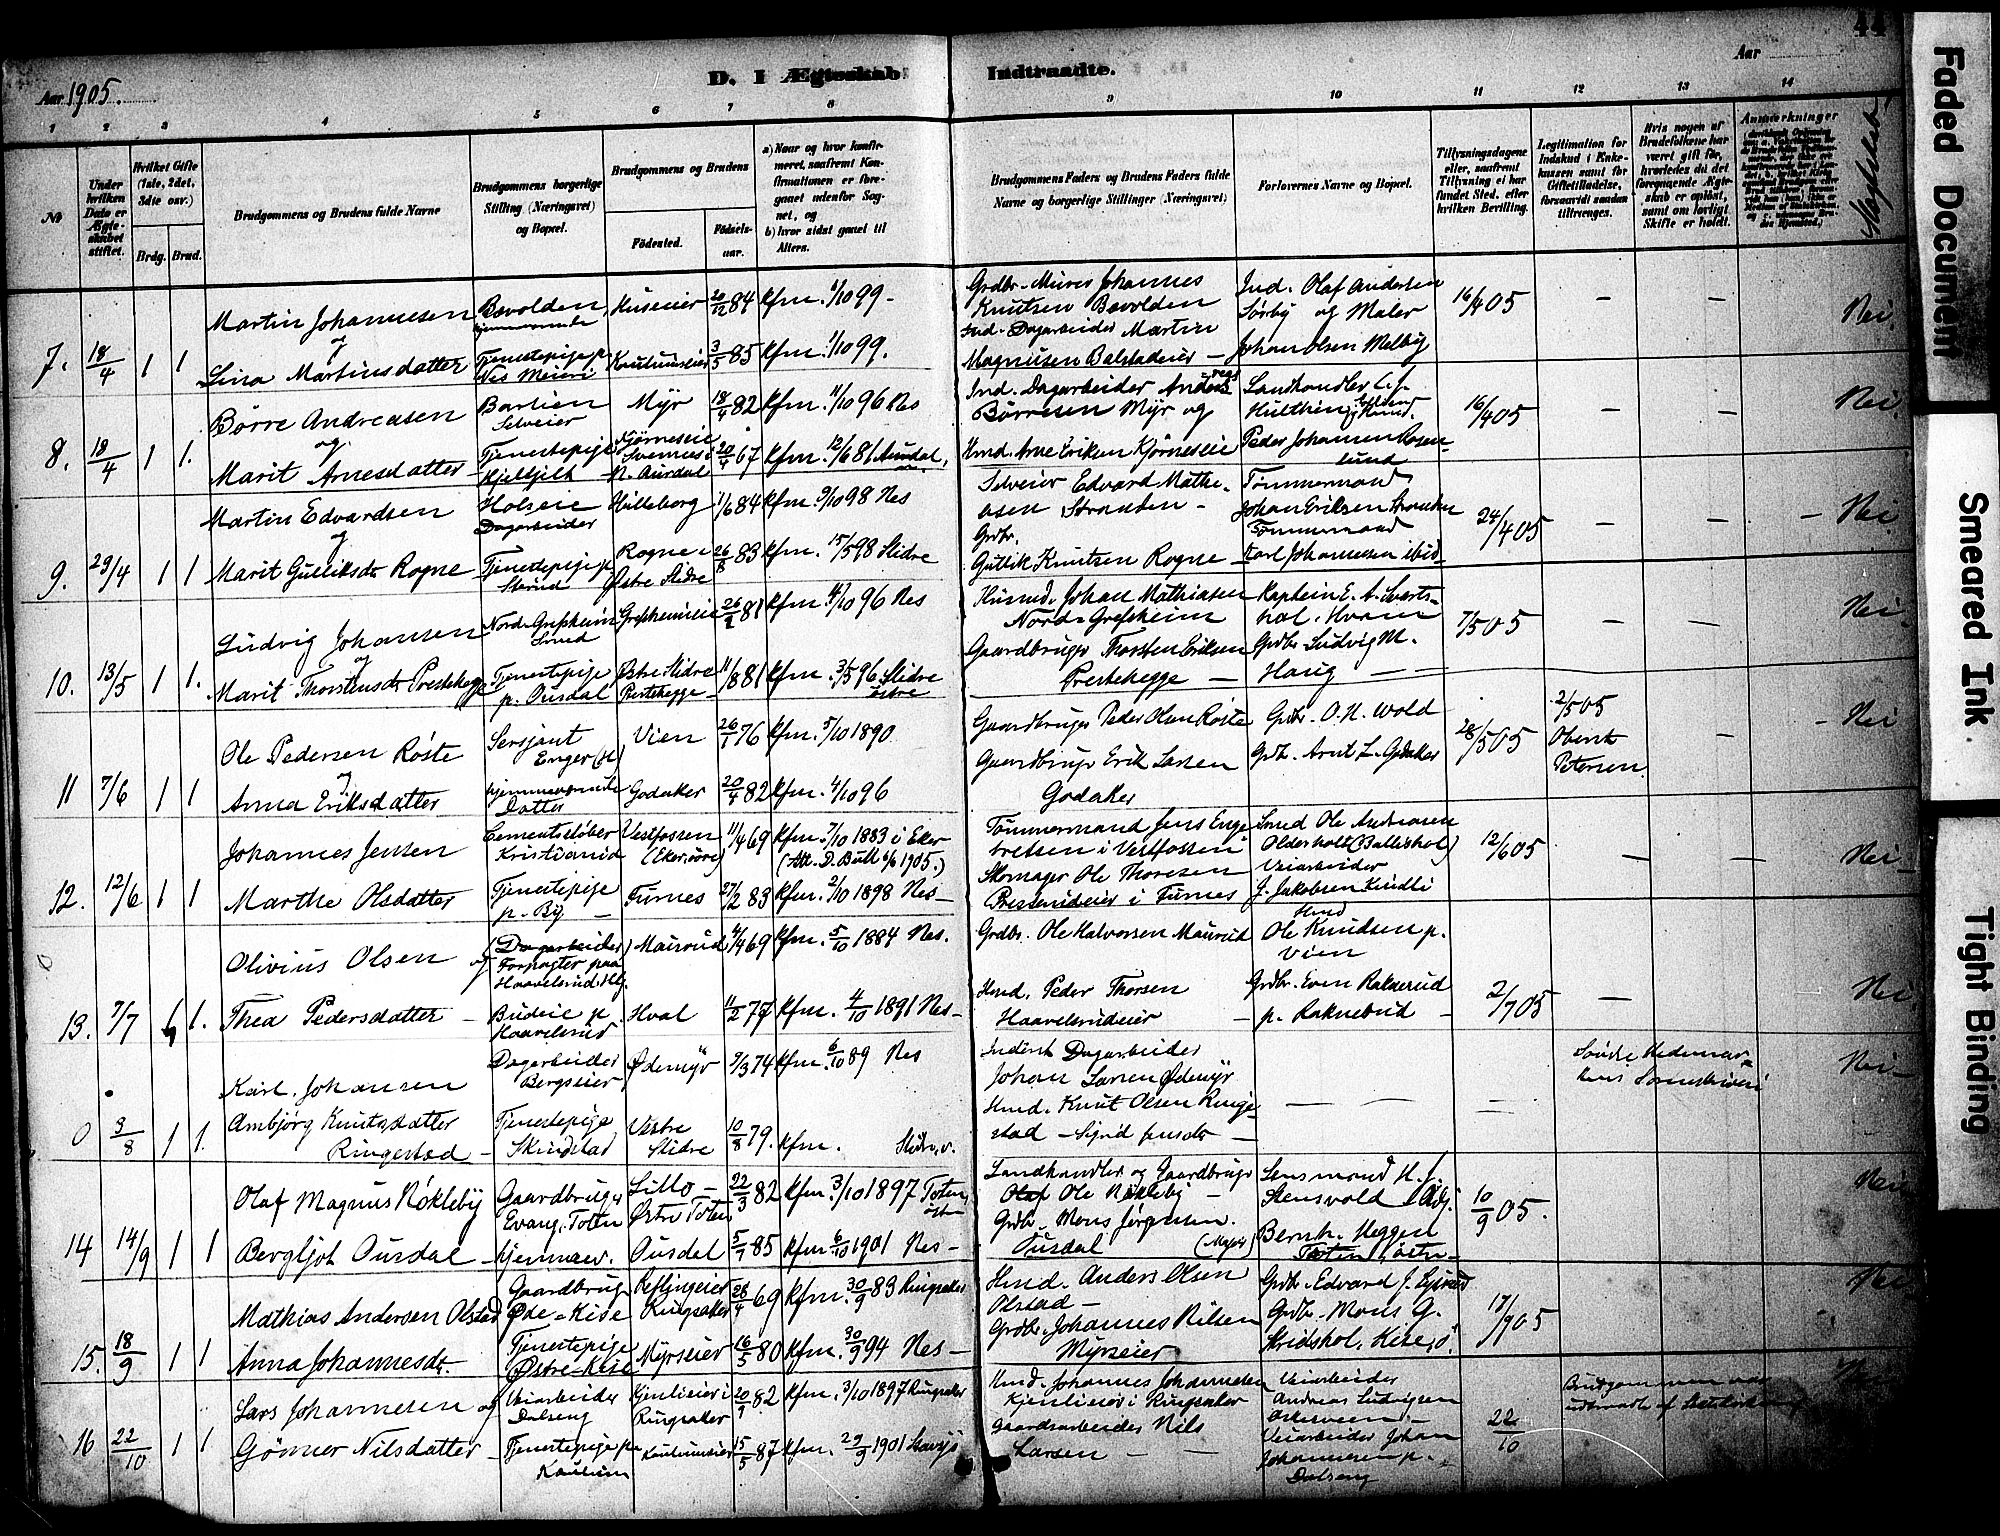 44
Aar 1905.
D. I Ægteskab
Indtraadte.
Aar
1 2 3 4 5 6 7 8 9 10 11 12 13 14
№
Under hvilken Dato er Ægteskabet stiftet.
Hvilket Gifte (1ste, 2det, 3die osv.)
Brdg. Brud.
Brudgommens og Brudens fulde Navne
Brudgommens borgerlige Stilling (Næringsvei) og Bopæl.
Brudgommens og Brudens
Födested.
Födselsaar.
a) Naar og hvor konfirmeret, saafremt Konfirmationen er foregaaet udenfor Sognet, og
b) hvor sidst gaaet til Alters.
Brudgommens Faders og Brudens Faders fulde Navne og borgerlige Stillinger (Næringsvei)
Forlovernes Navne og Bopæl.
Tillysningsdagene eller, saafremt Tillysning ei har fundet Sted, efter hvilken Bevilling.
Legitimation for Indskud i Enkekassen samt for Giftetilladelse, forsaavidt saadan tiltrænges.
Hvis nogen af Brudefolkene har været gift før, hvorledes da det foregaaende Ægteskab er opløst, samt om lovligt Skifte er holdt.
Anmærkninger
7. 18/4 1 1
Martin Johannesen Bævolden, hjemmeværende Huseier 20/12 84 kfm. 1/10 99 -
og
Lina Martinsdatter Tjenestepige p. Nes Meieri Kaulumseier 3/5 85 kfm. 1/10 99.
Grdbr. Murer Johannes Knutsen Bævolden
Ind. Dagarbeider Martin Magnusen Balstadeier -
Ind. Olaf Andersen Sørby og Maler Johan Olsen Melby
16/4 05 - - Nei.
8. 18/4 1 1.
Børre Andreasen Bartien Selveier Myr 18/4 82 kfm. 11/10 96 Nes
og
Marit Arnesdatter - Tjenestepige Kjelsfelt Kjørneseie Svennes i N. Aurdal 20/4 67 kfm. 12/6 81 Aurdal,
Ind. Dagarbeider Andreas Børresen Myr og
Hmd. Arne Eriksen Kjørneseie
Landhandler
Peder Johansen Rosenlund
16/4 05 - - Nei.
9. 29/4 1 1
Martin Edvardsen Holseie Dagarbeider Hilleborg 1/6 84 kfm. 9/10 98 Nes
og
Marit Gulliksdr Rogne Tjenestepige p. Rogne i Østre Slidre 26/8 83 kfm. 15/5 98 Slidre
Selveier Edvard Matheasen Stranden -
Grdbr. Gullik Knutsen Rogne -
Tømmermand Johan Eriksen
Tømmermand Karl Johannesen ibid
24/4 05 - - - Nei
10. 13/5 1 1.
Ludvig Johansen Nord-Grefsheim Smed Grefsheimeie 26/2 81 kfm. 4/10 96 Nes
og
Marit Thorstensdr Prestehegge Tjenestepige p. Ousdal Østre Slidre Prestehegge - 11/8 81 kfm. 3/5 96 Slidre østre
Husmd. Johan Mathiasen Nord-Grefsheim
Gaardbruger Thorsten Eriksen Prestehegge -
Kaptein E. A. Svartshol. Hvam
Grdbr Ludvig M. Haug -
7/5 05 - - Nei
11 7/6 1 1
Ole Pedersen Røste Sersjant Enger (H) Vien 26/1 76 kfm. 5/10 1890
og
Anna Eriksdatter hjemmeværende Datter Godaker 20/4 82 kfm. 4/10 96
Gaardbruger Peder Olsen Røste
Gaardbruger Erik Larsen Godaker
Grdbr. O. H. Wold
Grdbr. Arnt L. Godaker
28/5 05
2/5 05 Oberst Petersen - - Nei
12. 12/6 1 1
Johannes Jensen Cementstøber Kristiania Vestfossen (Eker, øvre) 11/4 69 kfm. 7/10 1883 i Eker (Att. D. Bull 6/6 1905.)
Marthe Olsdatter Tjenestepige p. By - Furnes 27/2 83 kfm. 2/10 1898 Nes -
Tømmermand Jens Engebretsen i Vestfossen
Skomager Ole Thoresen Presterudeier i Furnes
Smed Ole Andreasen Oldersholt (Ballishol)
Veiarbeider J. Jakobsen Kindli
12/6 05 - - Nei
13. 7/7 1 1.
Olivius Olsen og Dagarbeider Forpagter paa Haavelsrud, Hlj. Maurud 4/4 69 kfm. 5/10 1884 Nes.
Thea Pedersdatter - Budeie p. Haavelsrud Hval 11/2 77 kfm. 4/10 1891 Nes -
Grdbr. Ole Halvorsen Maurud
Hmd. Peder Thorsen Haavelsrudeier -
Hmd Ole Knudsen p. Vien
Grdbr. Even Raknerud p. Raknerud -
2/7 05 - Nei
0 3/8 1 1.
Karl Johansen Dagarbeider Bergseier Ødemyr 7/3 74 kfm. 6/10 89 Nes
Ambjörg Knutsdatter Ringestad - Tjenestepige Skindstad Vestre Slidre 10/8 79. kfm. Slidre, v.
Inderst Dagarbeider Johan Larsen Ødemyr
Hmd. Knut Olsen Ringestad -
- - -
Søndre Hedemarkens Sorenskriveri Nei -
14 14/9 1 1
Olaf Magnus Nøkleby Gaardbruger Evang, Toten Lillo - Østre Toten 22/3 82 kfm. 3/10 1897 Toten østre
Bergljot Ousdal - hjemmev. Ousdal 5/7 85 kfm. 6/10 1901 Nes -
Landhandler og Gaardbruger Ole Nøkleby -
Grdbr. Mons Jørgensen Ousdal (Major)
Lensmand H. J. Stensvold
Bernh. Heggen Toten, østre -
10/9 05. Nei
15. 18/9 1 1
Mathias Andersen Olstad Gaardbruger Øde-Kise Ringsaker 28/4 69 kfm. 30/9 83 Ringsaker
Anna Johannesdr. Tjenestepige Østre-Kise Myrseier 16/5 80 kfm. 30/9 94 Nes -
Hmd. Anders Olsen Olstad -
Grdbr. Johannes Nilsen Myrseier
Grdbr. Edvard J.
Grdbr. Mons G. Skridshol, Kise, ø.
17/9 05 Nei
16 22/10 1 1
Lars Johannesen og Veiarbeider Dalseng Kjenlieier i Ringsaker 20/9 82 kfm. 3/10 1897 Ringsaker
Gönner Nilsdatter - Tjenestepige paa Kaulum Kaulumseier 15/5 87 kfm. 29/9 1901 Stavsjø
Hmd. Johannes Johannesen Kjenlieier i Ringsaker
Gaardsarbeider Nils Larsen -
Veiarbeider Andreas Ludvigsen
Veiarbeider Johan Johannesen p. Dalseng
22/10
Brudgommen var udtraadt af Statskirken
Faded Document
Smeared Ink
Tight Binding